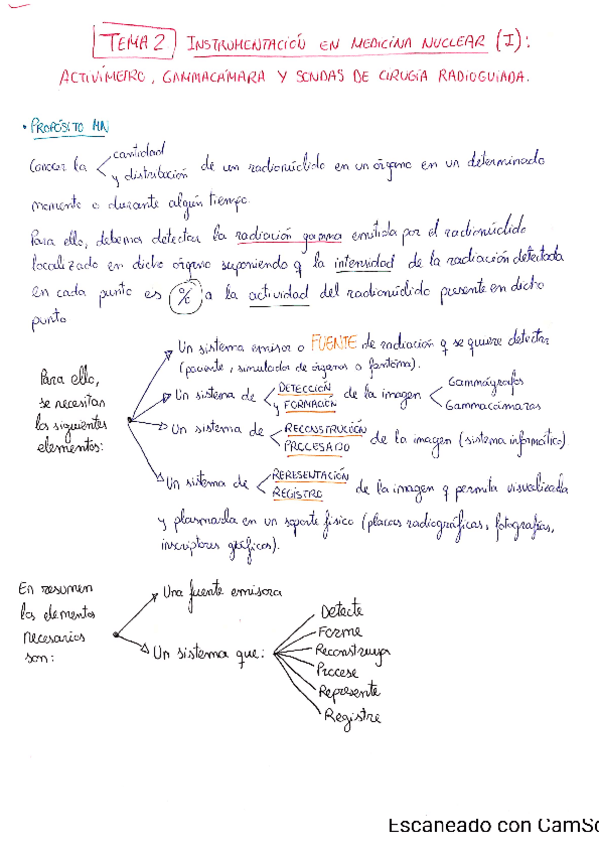 TEMA 2 INSTRUMENTACIÓN EN MEDICINA NUCLEAR (I):
ACTIVÍMETRO, GAMMACÁMARA Y SONDAS DE CIRUGÍA RADIOGUIADA.
• PROPÓSITO MN
Conocer la cantidad y distribución de un radionúclido en un órgano en un determinado
momento o durante algún tiempo.
Para ello, debemos detectar la radiación gamma emitida por el radionúclido
localizado en dicho órgano suponiendo q la intensidad de la radiación detectada
en cada punto es % a la actividad del radionúclido presente en dicho
punto
Para ello,
se necesitan
los siguientes
elementos:
Un sistema emisor o FUENTE de radiación q se quiere detectar
(paciente, simulador de órganos o fantoma).
Un sistema de DETECCIÓN y FORMACIÓN de la imagen Gammágrafos Gammacámaras
Un sistema de RECONSTRUCCIÓN PROCESADO de la imagen (sistema informático)
Un sistema de REPRESENTACIÓN REGISTRO de la imagen q permita visualizarla
y plasmarla en un soporte físico (placas radiográficas, fotografías,
inscriptores gráficos).
En resumen
los elementos
necesarios
son:
Una fuente emisora
Un sistema que:
Detecte
Forme
Reconstruya
Procese
Represente
Registre
Escaneado con CamSc